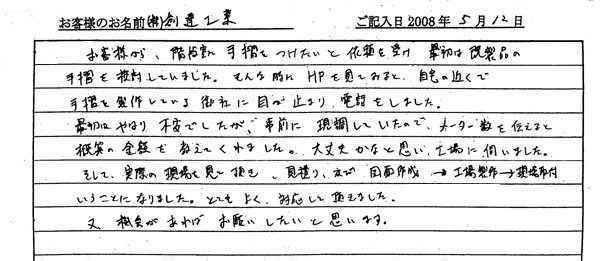 お客様のお名前 ㈱創造工業　ご記入日 2008年 5月 12日
お客様から、階段に手摺をつけたいと依頼を受け 最初は既製品の
手摺を検討していました。そんな時に HPを見てみると、自宅の近くで
手摺を製作している御社に目が止まり、電話をしました。
最初はやはり不安でしたが、事前に現調していたので、メーター数を伝えると
概算の金額を教えてくれました。大丈夫かなと思い、工場に伺いました。
そして、実際の現場を見て頂き、見積り、左び図面作成 → 工場製作 → 現場取付
いうことになりました。とてもよく、対応して頂きました。
又、機会があればお願いしたいと思います。